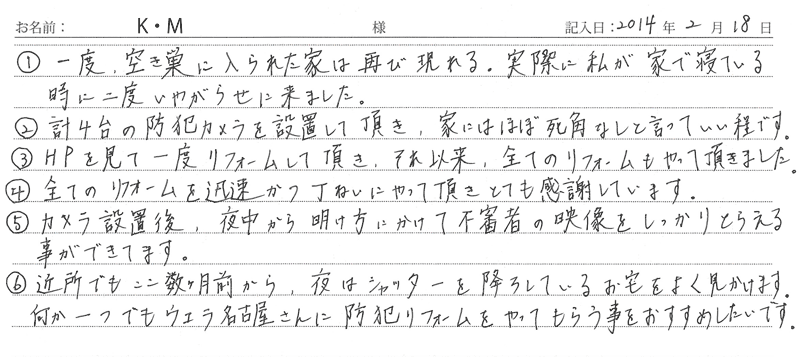 お名前： K・M 様 記入日：2014年 2月 18日
① 一度、空き巣に入られた家は再び現れる。実際に私が家で寝ている
時に二度いやがらせに来ました。
② 計4台の防犯カメラを設置して頂き、家にはほぼ死角なしと言っていい程です。
③ HPを見て一度リフォームして頂き、それ以来、全てのリフォームもやって頂きました。
④ 全てのリフォームを迅速かつ丁ねいにやって頂きとても感謝しています。
⑤ カメラ設置後、夜中から明け方にかけて不審者の映像をしっかりとらえる
事ができてます。
⑥ 近所でもここ数ヶ月前から、夜はシャッターを降ろしているお宅をよく見かけます。
何か一つでもウェラ名古屋さんに防犯リフォームをやってもらう事をおすすめしたいです。